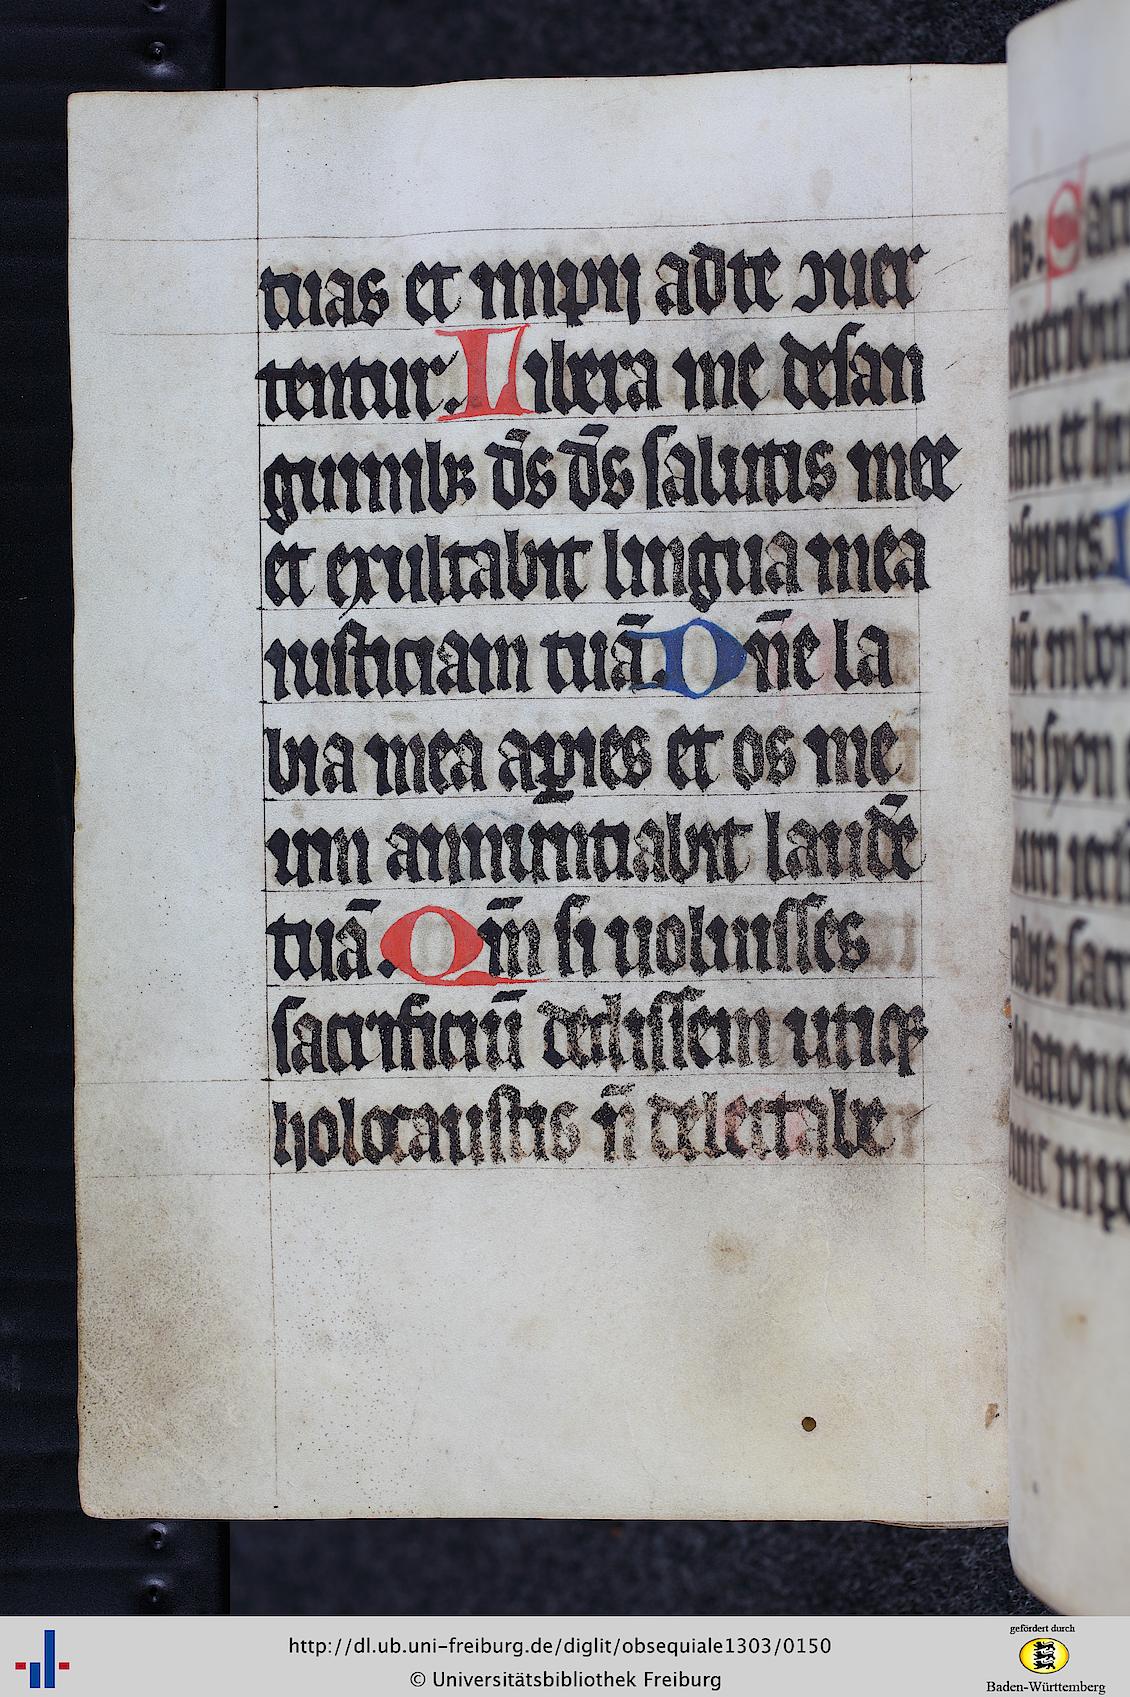 tuas et impij ad te ꝯuer
tentur. Libera me de san
guinibꝫ d̄s d̄s salutis mee
et exultabit lingua mea
iusticiam tuā. Dn̄e la
bia mea aꝑies et os me
um annuntiabit laudē
tuā. Qm̄ si uoluisses
sacrificiū dedissem utiqꝫ
holocaustis n̄ delectabe
http://dl.ub.uni-freiburg.de/diglit/obsequiale1303/0150
© Universitätsbibliothek Freiburg
gefördert durch
Baden-Württemberg